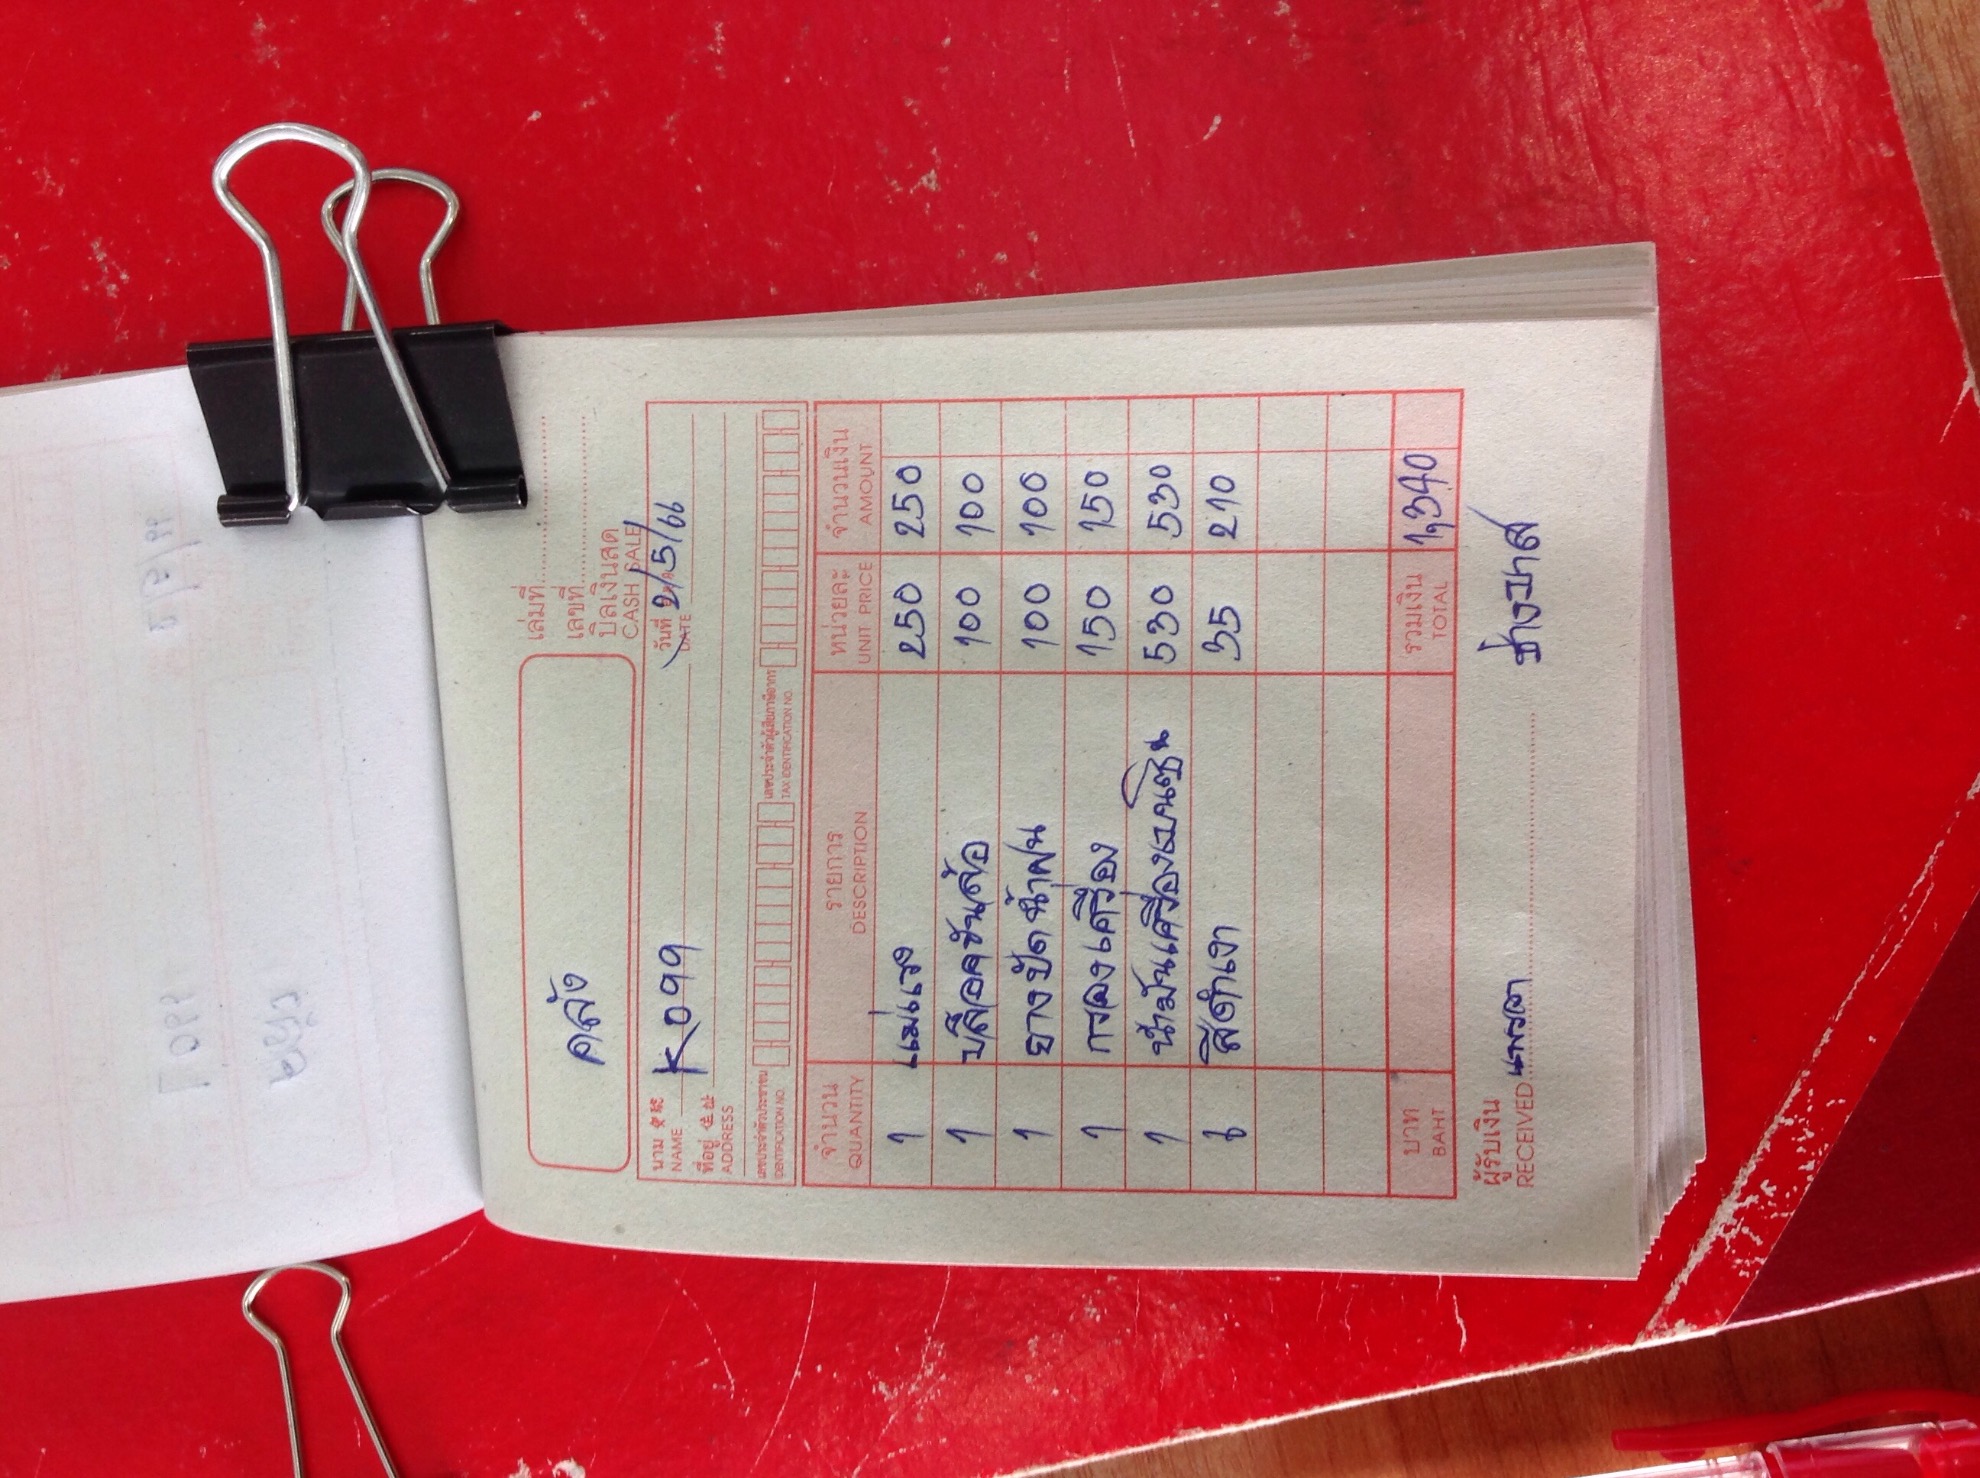 เล่มที่
เลขที่
บิลเงินสด
CASH SALE
คลัง
นาม K 099 วันที่ 2/5/66
NAME DATE
ที่อยู่
ADDRESS
เลขประจำตัวประชาชน เลขประจำตัวผู้เสียภาษีอากร
IDENTIFICATION NO. TAX IDENTIFICATION NO.
จำนวน รายการ หน่วยละ จำนวนเงิน
QUANTITY DESCRIPTION UNIT PRICE AMOUNT
1 แม่แรง 250 250
1 บล๊อคขันล้อ 100 100
1 ยางปัดน้ำฝน 100 100
1 กรองเครื่อง 150 150
1 น้ำมันเครื่องเบนซิน 530 530
6 สีดำเงา 35 210
บาท รวมเงิน 1,340
BAHT TOTAL
ผู้รับเงิน
RECEIVED ช่างมาส